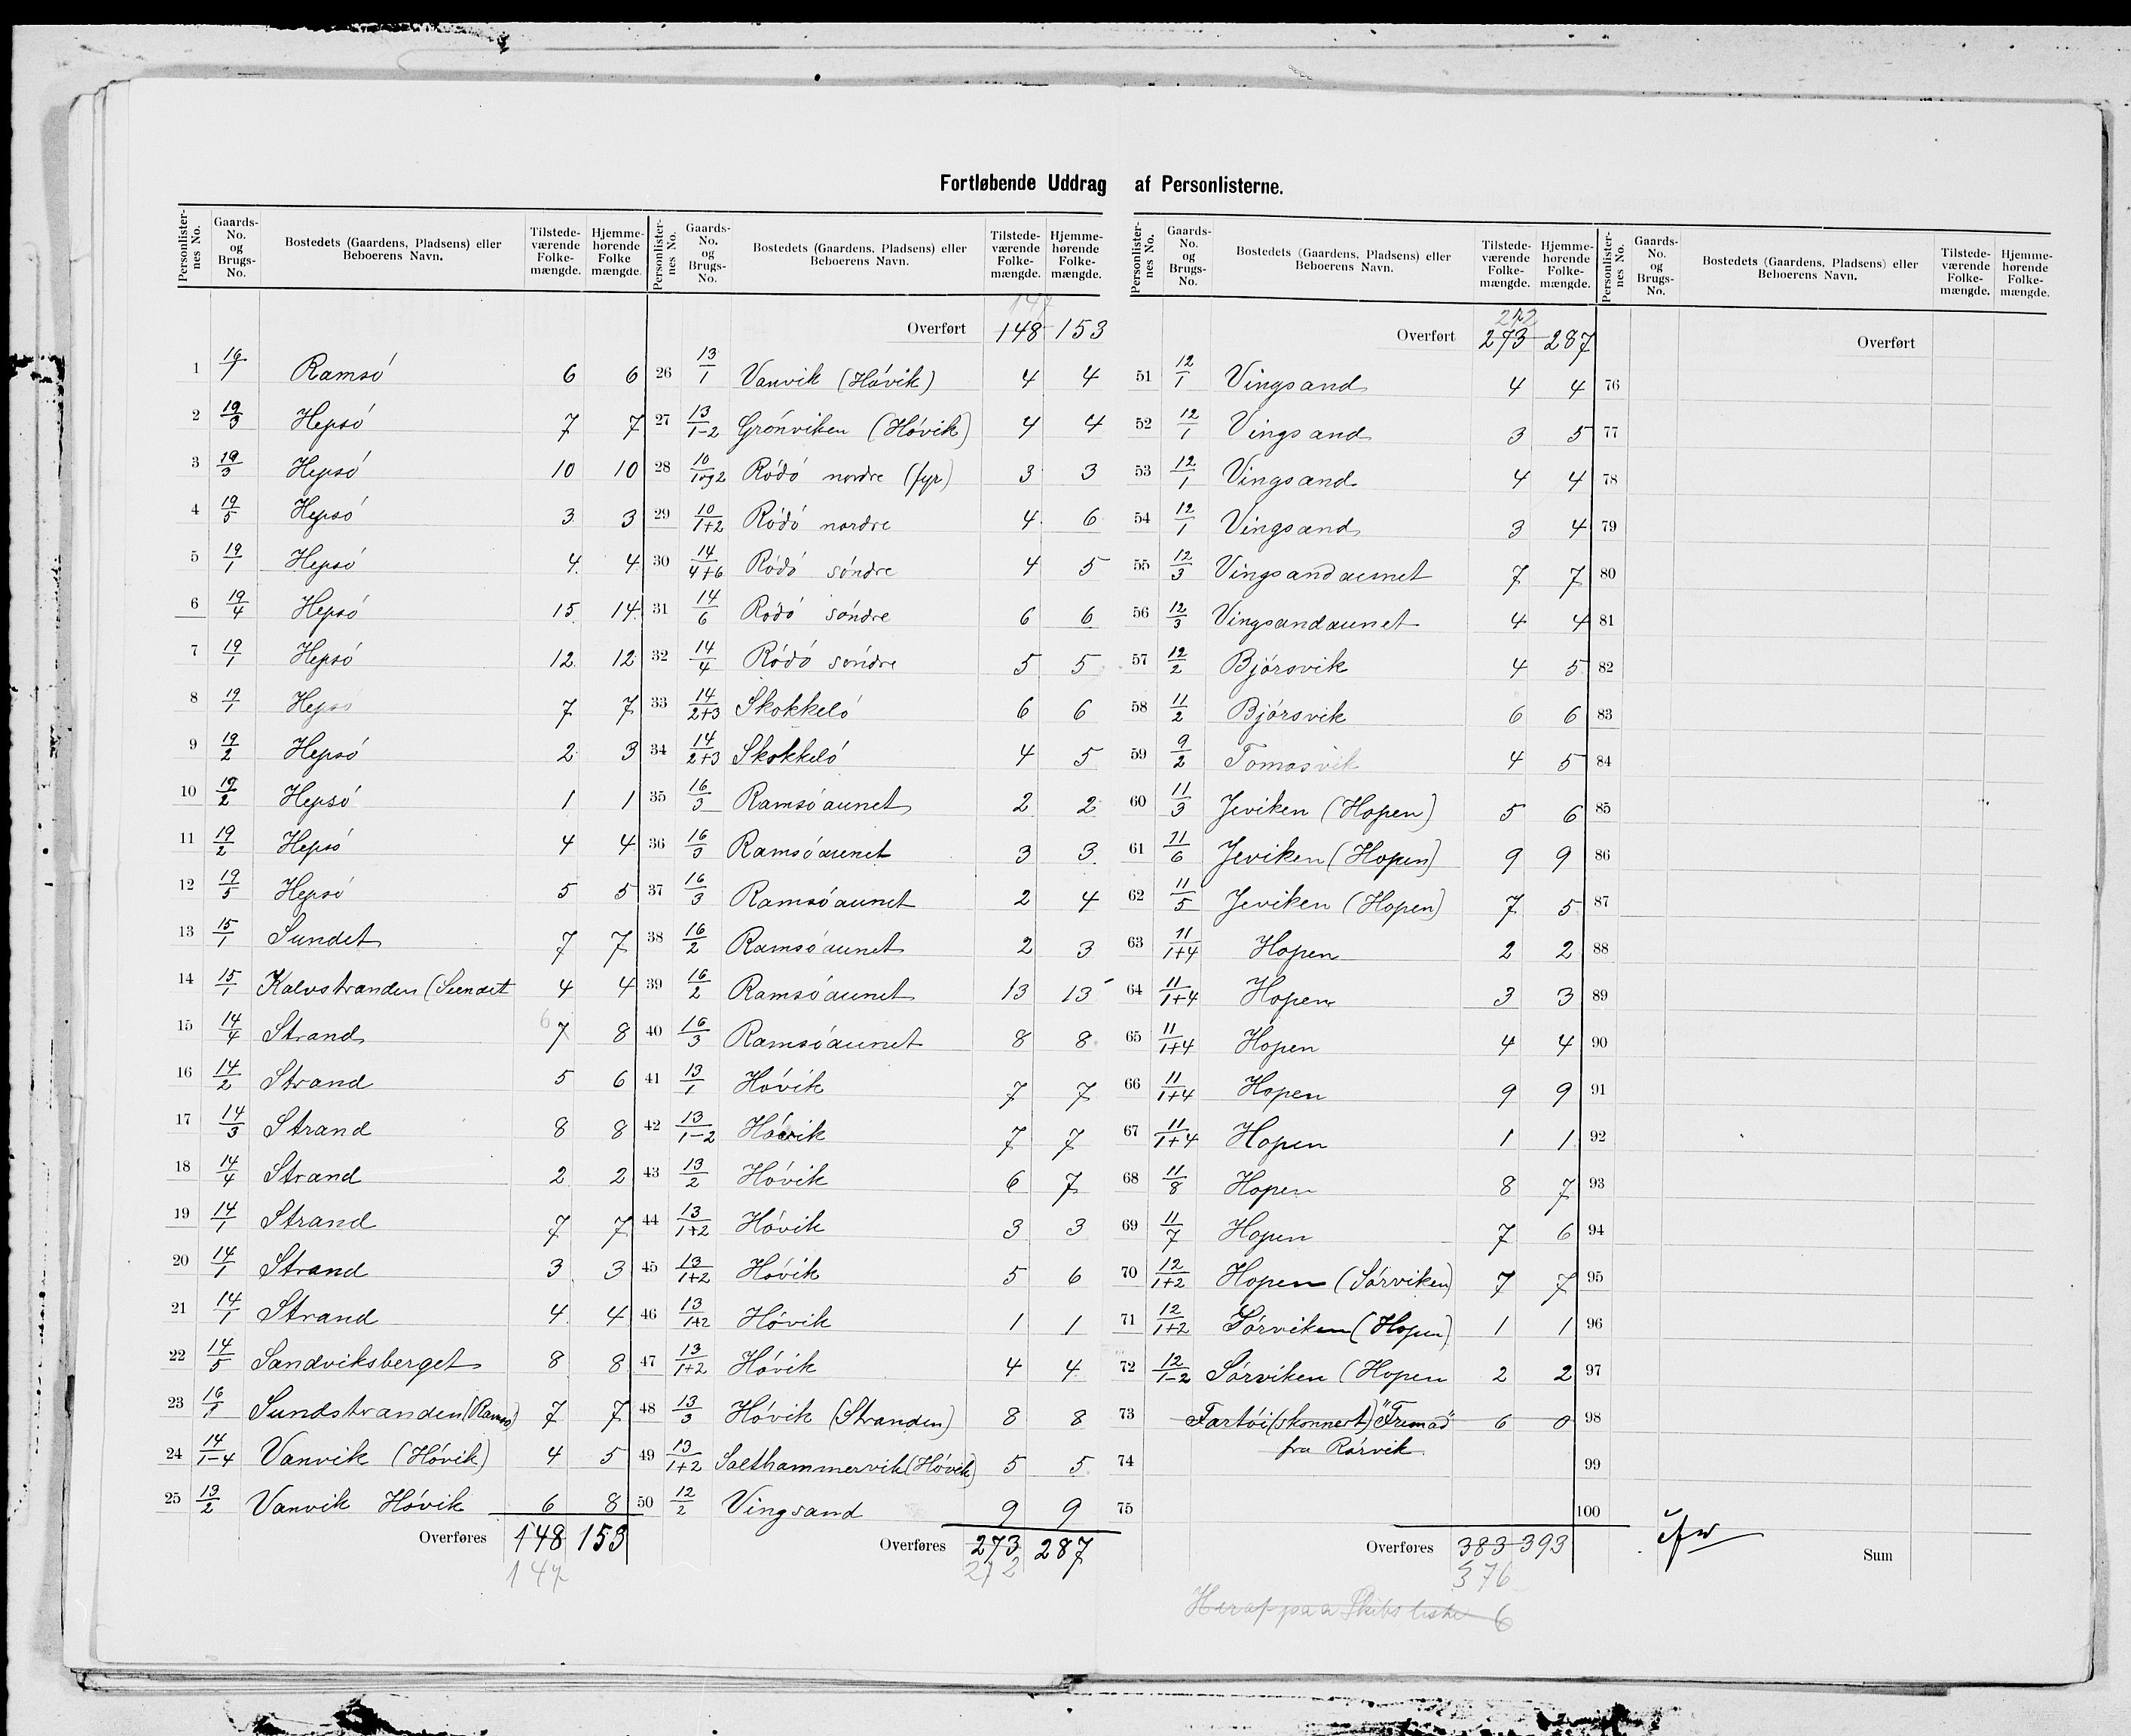 Fortløbende Uddrag af Personlisterne.
Personlister-nes No. Gaards-No. og Brugs-No. Bostedets (Gaardens, Pladsens) eller Beboerens Navn. Tilstede-værende Folke-mængde. Hjemme-hørende Folke mængde.
1 16/1 Ramsö 6 6
2 19/3 Hepsö 7 7
3 19/3 Hepsö 10 10
4 19/5 Hepsö 3 3
5 19/1 Hepsö 4 4
6 19/4 Hepsö 15 14
7 19/1 Hepsö 12 12
8 19/1 Hepsö 7 7
9 19/2 Hepsö 2 3
10 19/2 Hepsö 1 1
11 19/2 Hepsö 4 4
12 19/5 Hepsö 5 5
13 15/1 Sundet 7 7
14 15/1 Kalvstranden (Sundet 4 4
15 14/4 Strand 6 7 8
16 14/2 Strand 5 6
17 14/3 Strand 8 8
18 14/4 Strand 2 2
19 14/1 Strand 7 7
20 14/1 Strand 3 3
21 14/1 Strand 4 4
22 14/5 Sandviksberget 8 8
23 16/1 Sundstranden (Ramsö) 7 7
24 14/1-4 Vanvik (Hövik) 4 5
25 13/2 Vanvik Hövik 6 8
Overføres 148 153
147
Personlister-nes No. Gaards-No. og Brugs-No. Bostedets (Gaardens, Pladsens) eller Beboerens Navn. Tilstede-værende Folke-mængde. Hjemme-hørende Folke-mængde.
147
Overført 148 153
26 13/1 Vanvik (Hövik) 4 4
27 13/1-2 Grönviken (Hövik) 4 4
28 10/1og2 Rödö nordre (fyr) 3 3
29 10/1+2 Rödö nordre 4 6
30 14/4+6 Rödö söndre 4 5
31 14/6 Rödö söndre 6 6
32 14/4 Rödö söndre 5 5
33 14/2+3 Skokkelö 6 6
34 14/2+3 Skokkelö 4 5
35 16/3 Ramsöaunet 2 2
36 16/3 Ramsöaunet 3 3
37 16/3 Ramsöaunet 2 4
38 16/2 Ramsöaunet 2 3
39 16/2 Ramsöaunet 13 13
40 16/3 Ramsöaunet 8 8
41 13/1 Hövik 7 7
42 13/1-2 Hövik 7 7
43 13/2 Hövik 6 7
44 13/1+2 Hövik 3 3
45 13/1+2 Hövik 5 6
46 13/1+2 Hövik 1 1
47 13/1+2 Hövik 4 4
48 13/3 Hövik (Stranden) 8 8
49 13/1+2 Salthammervik (Hövik) 5 5
50 12/2 Vingsand 9 9
Overføres 273 287
272
Personlister-nes No. Gaards-No. og Brugs-No. Bostedets (Gaardens, Pladsens) eller Beboerens Navn. Tilstede-værende Folke-mængde. Hjemme-hørende Folke-mængde.
272
Overført 273 287
51 12/1 Vingsand 4 4
52 12/1 Vingsand 3 5
53 12/1 Vingsand 4 4
54 12/1 Vingsand 3 4
55 12/3 Vingsandaunet 7 7
56 12/3 Vingsandaunet 4 4
57 12/2 Björsvik 4 5
58 11/2 Björsvik 6 6
59 9/2 Tomasvik 4 5
60 11/3 Jeviken (Hopen) 5 6
61 11/6 Jeviken (Hopen) 9 9
62 11/5 Jeviken (Hopen) 7 5
63 11/1+4 Hopen 2 2
64 11/1+4 Hopen 3 3
65 11/1+4 Hopen 4 4
66 11/1+4 Hopen 9 9
67 11/1+4 Hopen 1 1
68 11/8 Hopen 8 7
69 11/7 Hopen 7 6
70 12/1+2 Hopen (Sörviken) 7 7
71 12/1+2 Sörviken (Hopen) 1 1
72 12/1-2 Sörviken (Hopen 2 2
73 Fartöi (skonnert) "Fremad" 6 0
74 fra Rörvik
75
Overføres 383 393
376
Heraf paa Skibsliste 6
Personlister-nes No. Gaards-No. og Brugs-No. Bostedets (Gaardens, Pladsens) eller Beboerens Navn. Tilstede-værende Folke-mængde. Hjemme-hørende Folke-mængde.
Overført
76
77
78
79
80
81
82
83
84
85
86
87
88
89
90
91
92
93
94
95
96
97
98
99
100
Sum